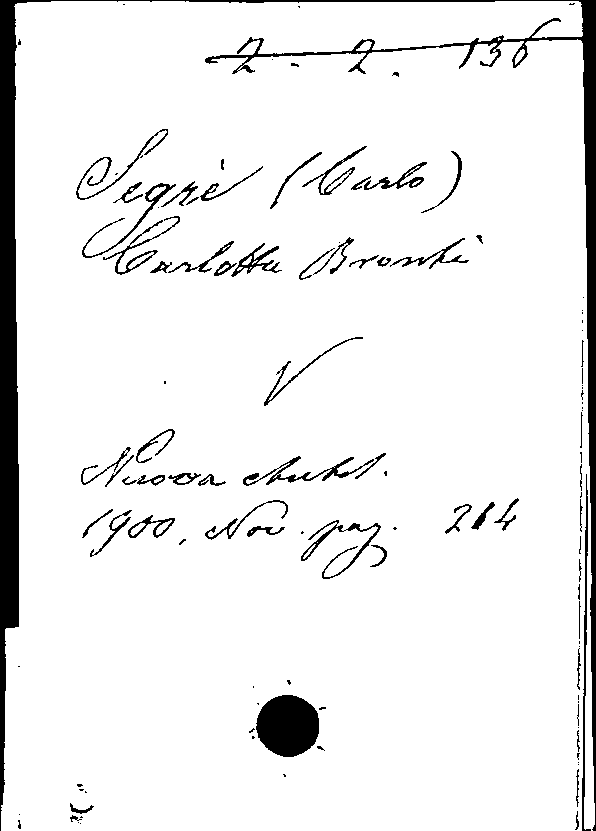 2 - 2. 136
Segrè (Carlo)
Carlotta Brontè
V
Nuova Antol.
1900, Nov. pag. 214